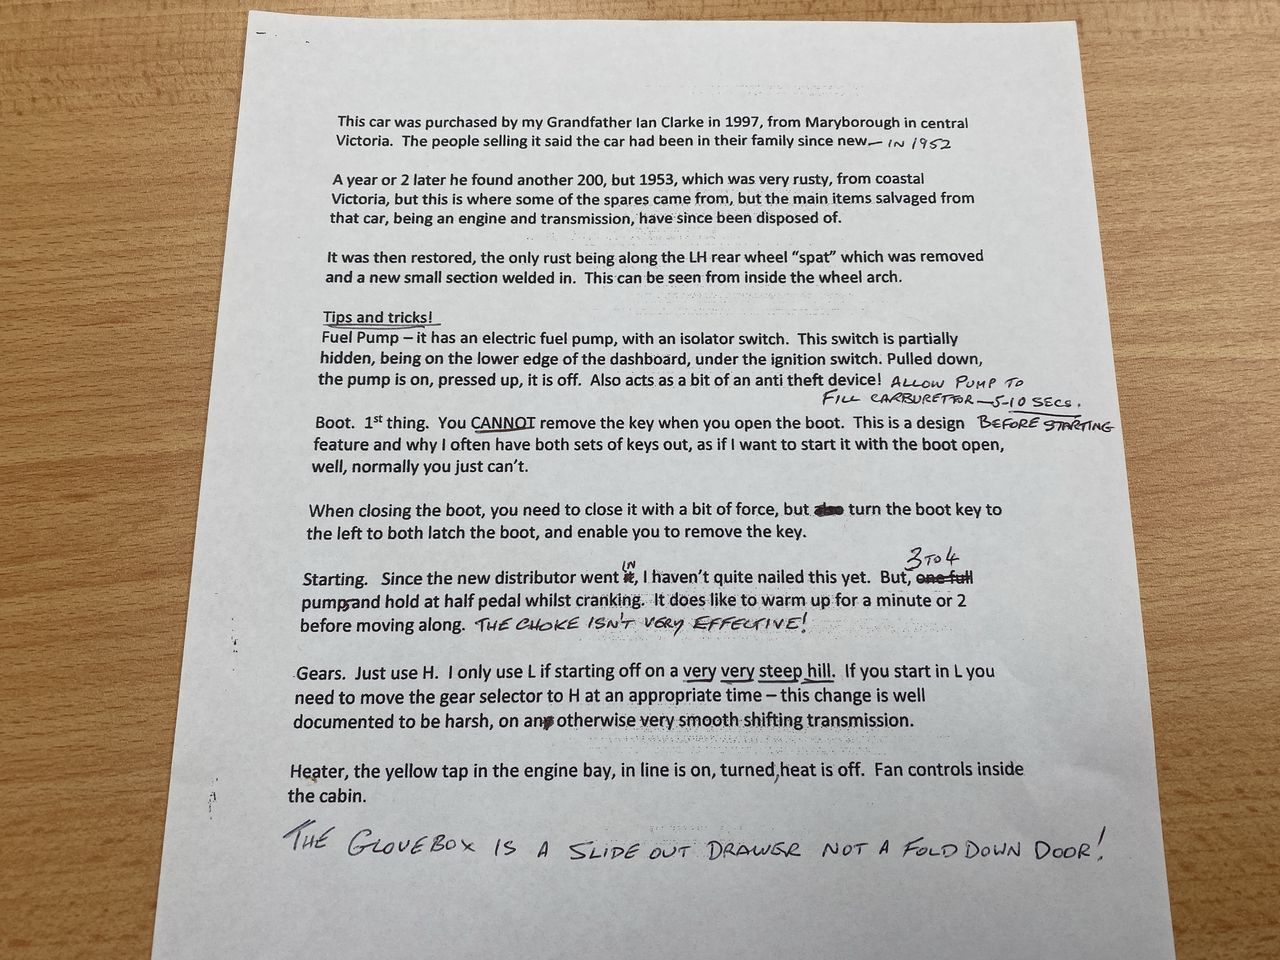 This car was purchased by my Grandfather Ian Clarke in 1997, from Maryborough in central
Victoria. The people selling it said the car had been in their family since new — IN 1952
A year or 2 later he found another 200, but 1953, which was very rusty, from coastal
Victoria, but this is where some of the spares came from, but the main items salvaged from
that car, being an engine and transmission, have since been disposed of.
It was then restored, the only rust being along the LH rear wheel “spat” which was removed
and a new small section welded in. This can be seen from inside the wheel arch.
Tips and tricks!
Fuel Pump – it has an electric fuel pump, with an isolator switch. This switch is partially
hidden, being on the lower edge of the dashboard, under the ignition switch. Pulled down,
the pump is on, pressed up, it is off. Also acts as a bit of an anti theft device! ALLOW PUMP TO
FILL CARBURETTOR — 5-10 SECS.
BEFORE STARTING
Boot. 1st thing. You CANNOT remove the key when you open the boot. This is a design
feature and why I often have both sets of keys out, as if I want to start it with the boot open,
well, normally you just can’t.
When closing the boot, you need to close it with a bit of force, but turn the boot key to
the left to both latch the boot, and enable you to remove the key.
Starting. Since the new distributor went IN, I haven’t quite nailed this yet. But, 3 TO 4 one full
pumps and hold at half pedal whilst cranking. It does like to warm up for a minute or 2
before moving along. THE CHOKE ISN'T VERY EFFECTIVE!
Gears. Just use H. I only use L if starting off on a very very steep hill. If you start in L you
need to move the gear selector to H at an appropriate time – this change is well
documented to be harsh, on an otherwise very smooth shifting transmission.
Heater, the yellow tap in the engine bay, in line is on, turned, heat is off. Fan controls inside
the cabin.
THE GLOVEBOX IS A SLIDE OUT DRAWER NOT A FOLD DOWN DOOR!